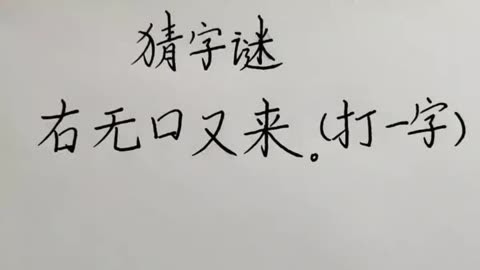 猜字谜
右无口又来。(打一字)